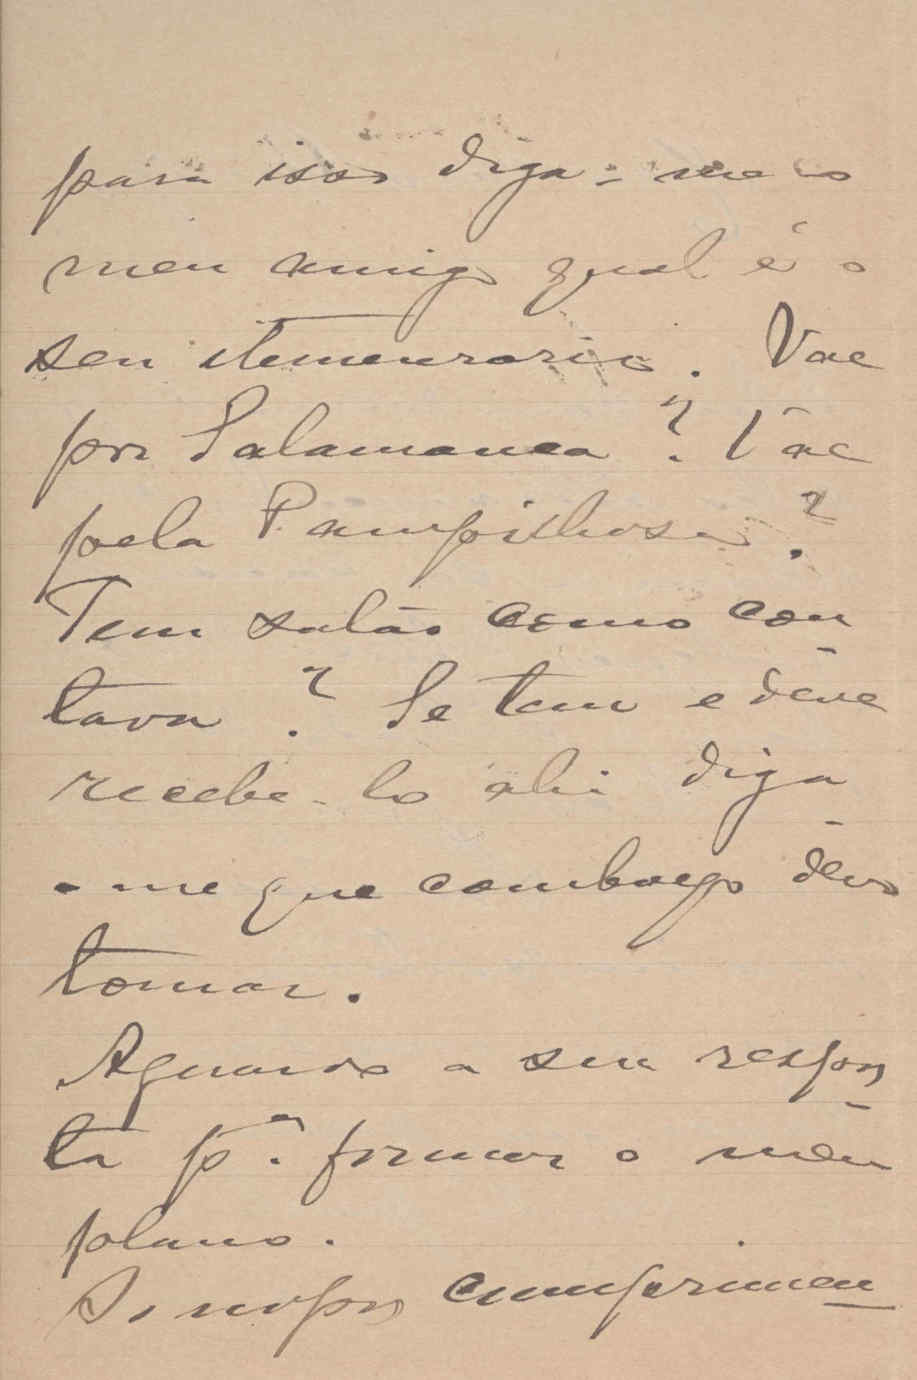 para isso diga-me o
meu amigo qual é o
seu itemenrario. Vae
por Salamanca? Vae
pela Pampilhosa?
Tem salão como con
tava? Se tem e deve
recebe-lo ahi diga
-me que comboyo devo
tomar.
Aguardo a sua respos
ta pª. formar o meu
plano.
cumprimen